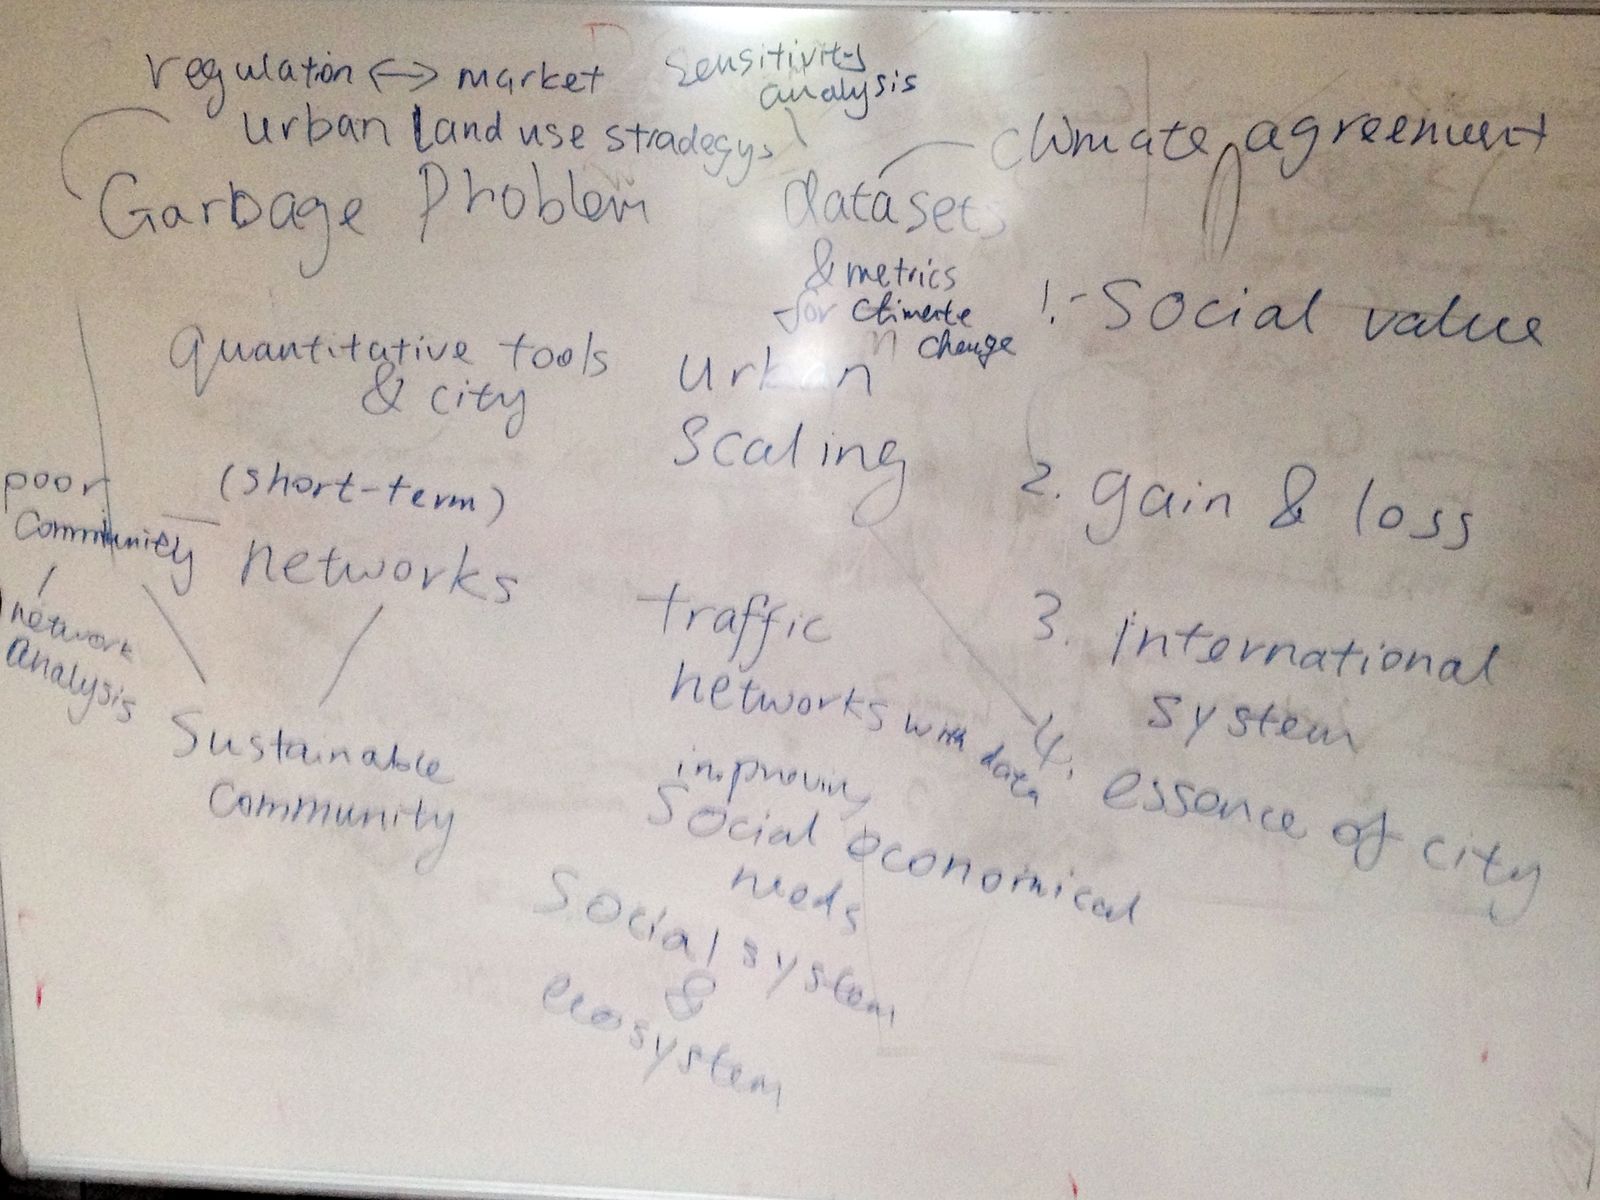 regulation <-> market
urban land use stradegys
Garbage Problem
quantitative tools
& city
poor
community
(short-term)
networks
network
analysis
Sustainable
Community
Sensitivity
analysis
datasets
& metrics
for climate
change
urban
Scaling
traffic
networks with data
improving
Social economical
needs
Social system
&
ecosystem
climate agreement
1.- Social value
2. gain & loss
3. international
system
4. essence of city